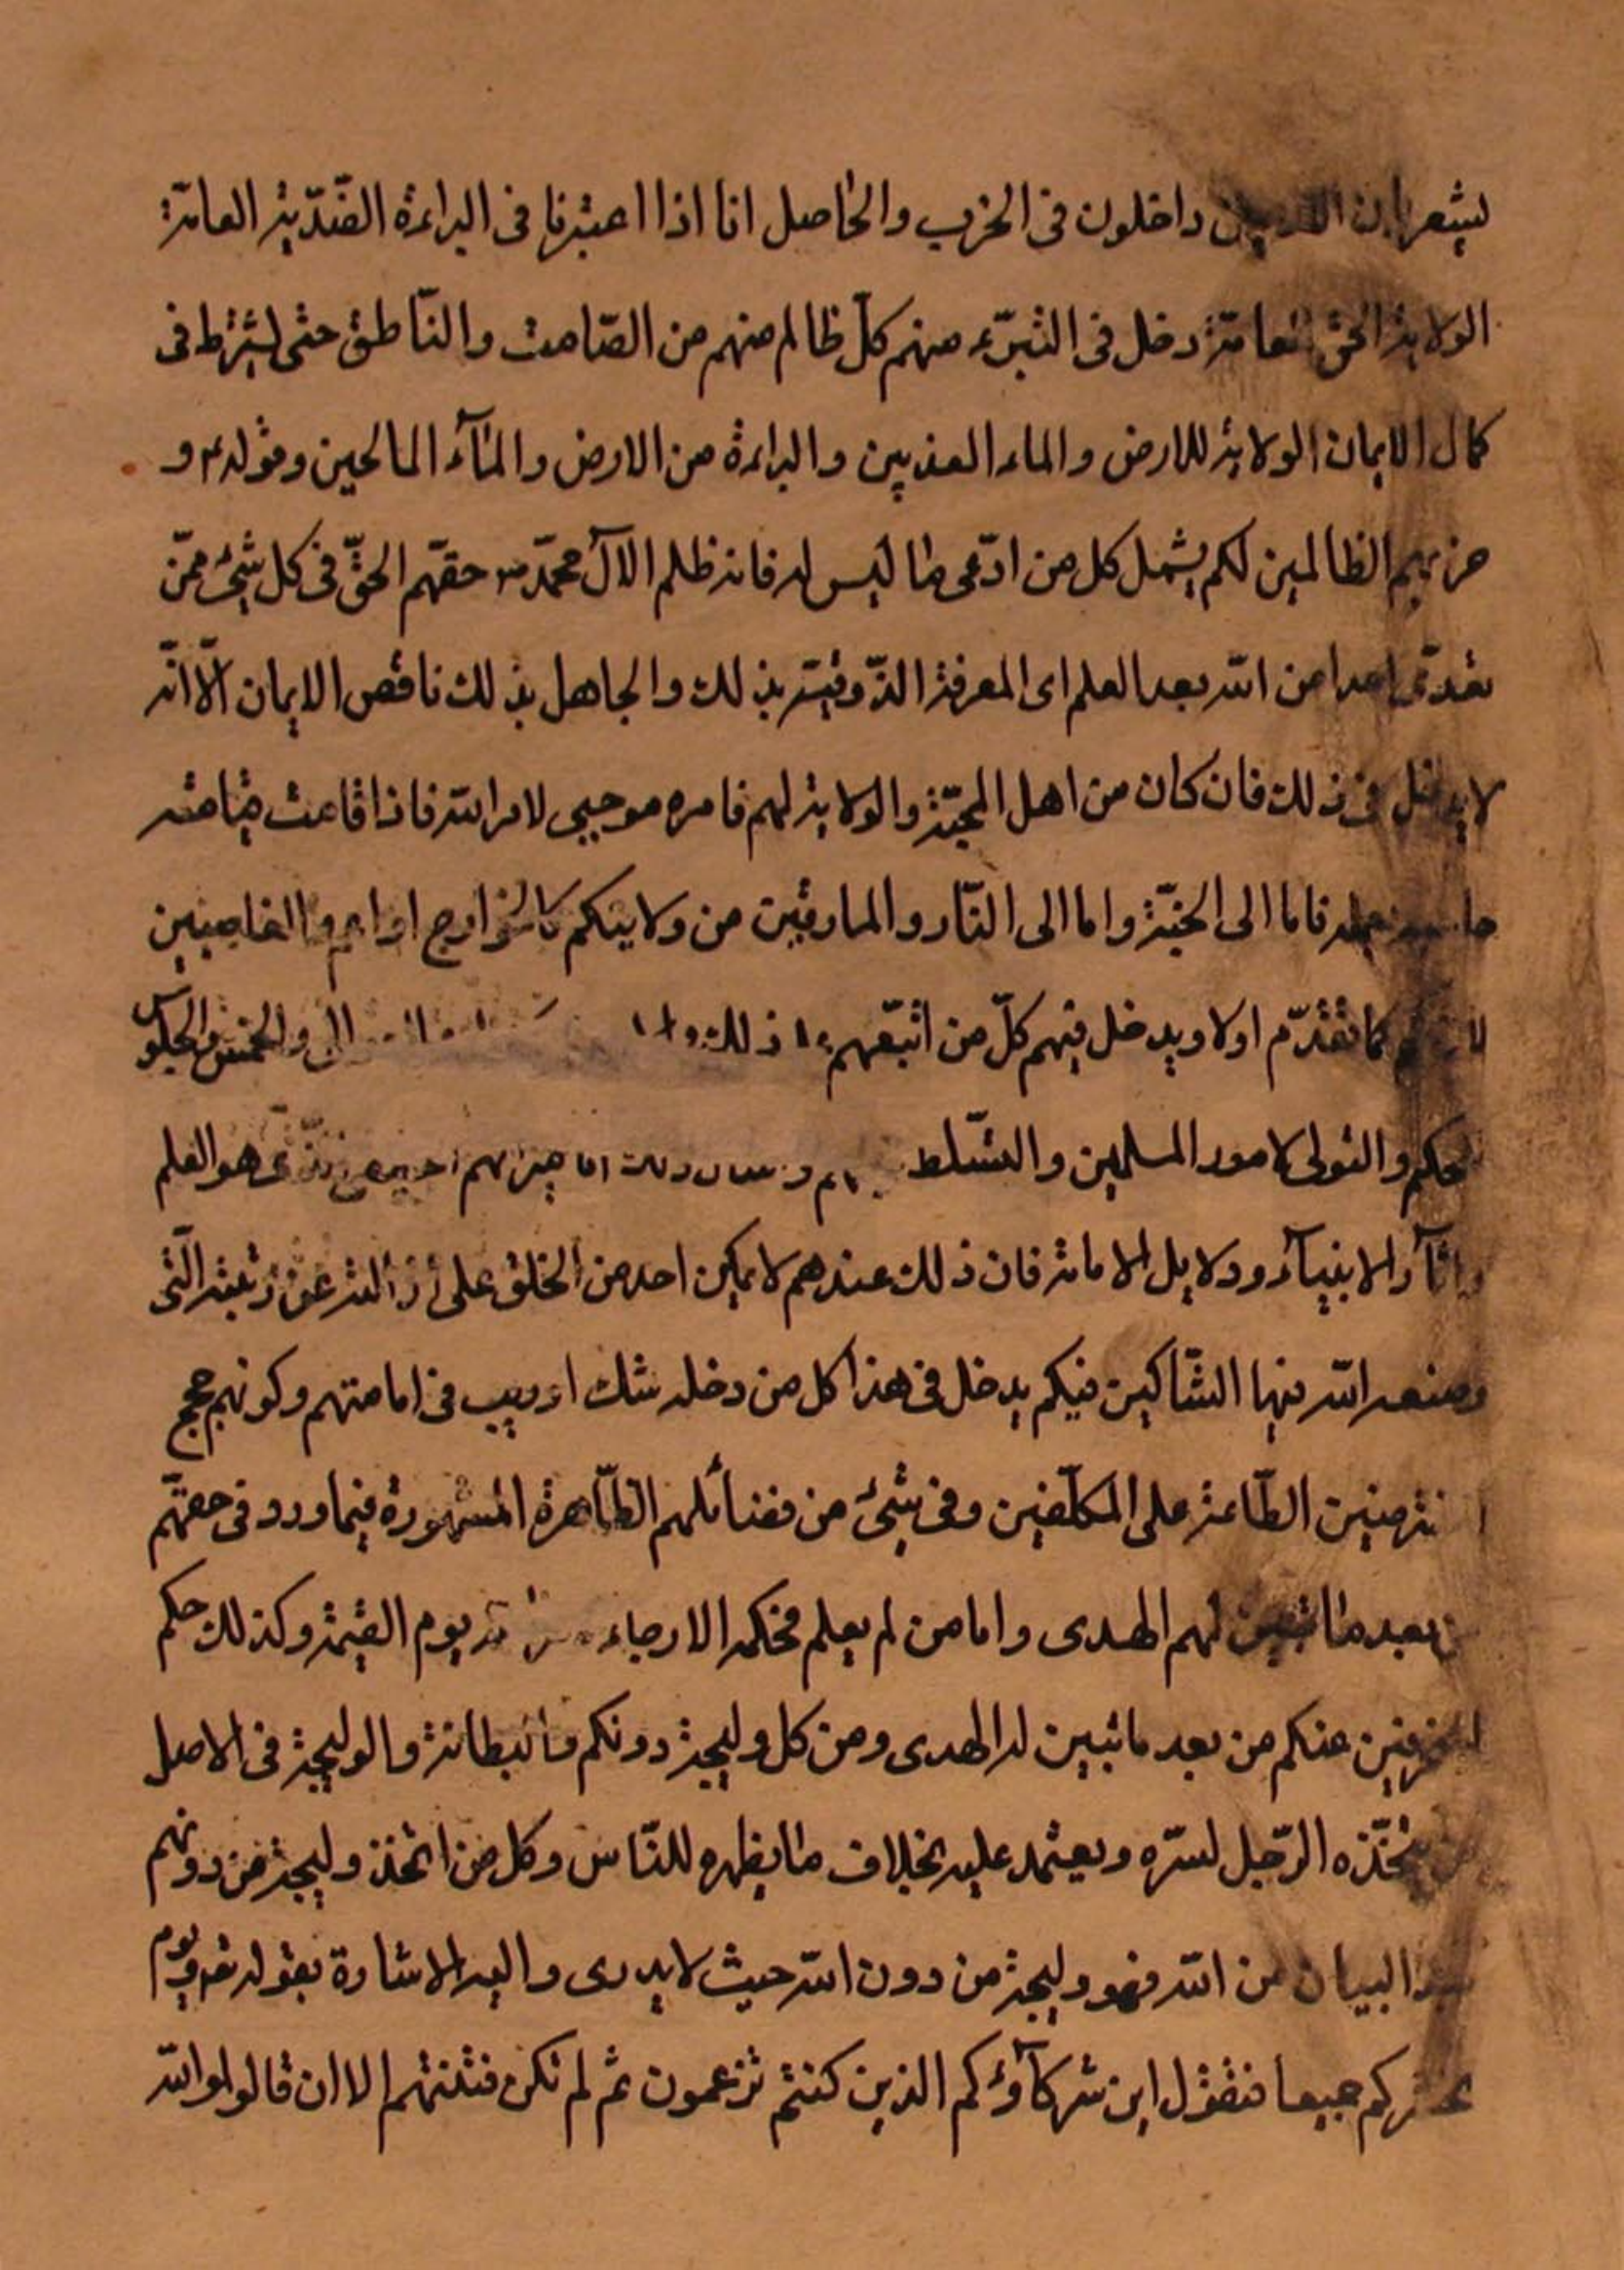 يشعر بان داخلون فى الحزب والحاصل انا اذا اعتبرنا فى البراءة الضّدّية العامّة
الولاية الحق العامّة دخل فى التبرّء منهم كلّ ظالم منهم من الصّامت والنّاطق حتى يشترط فى
كمال الايمان الولاية للارض والماء العذبين والبراءة من الارض والمآء المالحين وقوله ع و
حزبهم الظالمين لكم يشمل كل من ادّعى ما ليس له فانه ظلم الآل محمّد ص حقهم الحقّ فى كل شئ ممّن
تعدّى من الله بعد العلم اى المعرفة الذّوقيّة بذلك والجاهل بذلك ناقص الايمان الّا انّه
لا يدخل فى ذلك فان كان من اهل المحبّة والولاية لهم فامره موجبى لامر الله فاذا قامت قيامته
فاما الى الجنّة واما الى النّار والمارقين من ولايتكم كالخوارج والغاصبين
كما تقدّم اولا ويدخل فيهم كلّ من اتبعهم ذلك والخمس والجلوس
للحكم والتولى لامور المسلمين والتسّلط هو العلم
واثآر الانبيآء ودلايل الامامة فان ذلك عندهم لا يمكن احد من الخلق على رتبته الّتى
وضعه الله فيها الشّاكين فيكم يدخل فى هذا كل من دخله شك او ريب فى امامتهم وكونهم حجج
الطّاعة على المكلّفين وفى شئ من فضائلهم الظّاهرة المشهورة فيما ورد فى حقهّم
من بعد ما تبين لهم الهدى واما من لم يعلم فحكمه الارجاء يوم القيٰمة وكذلك حكم
المنحرفين عنكم من بعد ما تبين له الهدى ومن كل وليجة دونكم والوليجة فى الاصل
من يتّخذه الرّجل لسرّه ويعتمد عليه بخلاف ما يظهره للنّاس وكل من اتخذ وليجة من دونهم
بعد البيان من الله فهو وليجة من دون الله حيث لا يدرى واليه الاشارة بقوله تع ويوم
نحشركم جميعا فنقول اين شركآؤكم الذين كنتم تزعمون ثم لم تكن فتنتهم الا ان قالوا والله